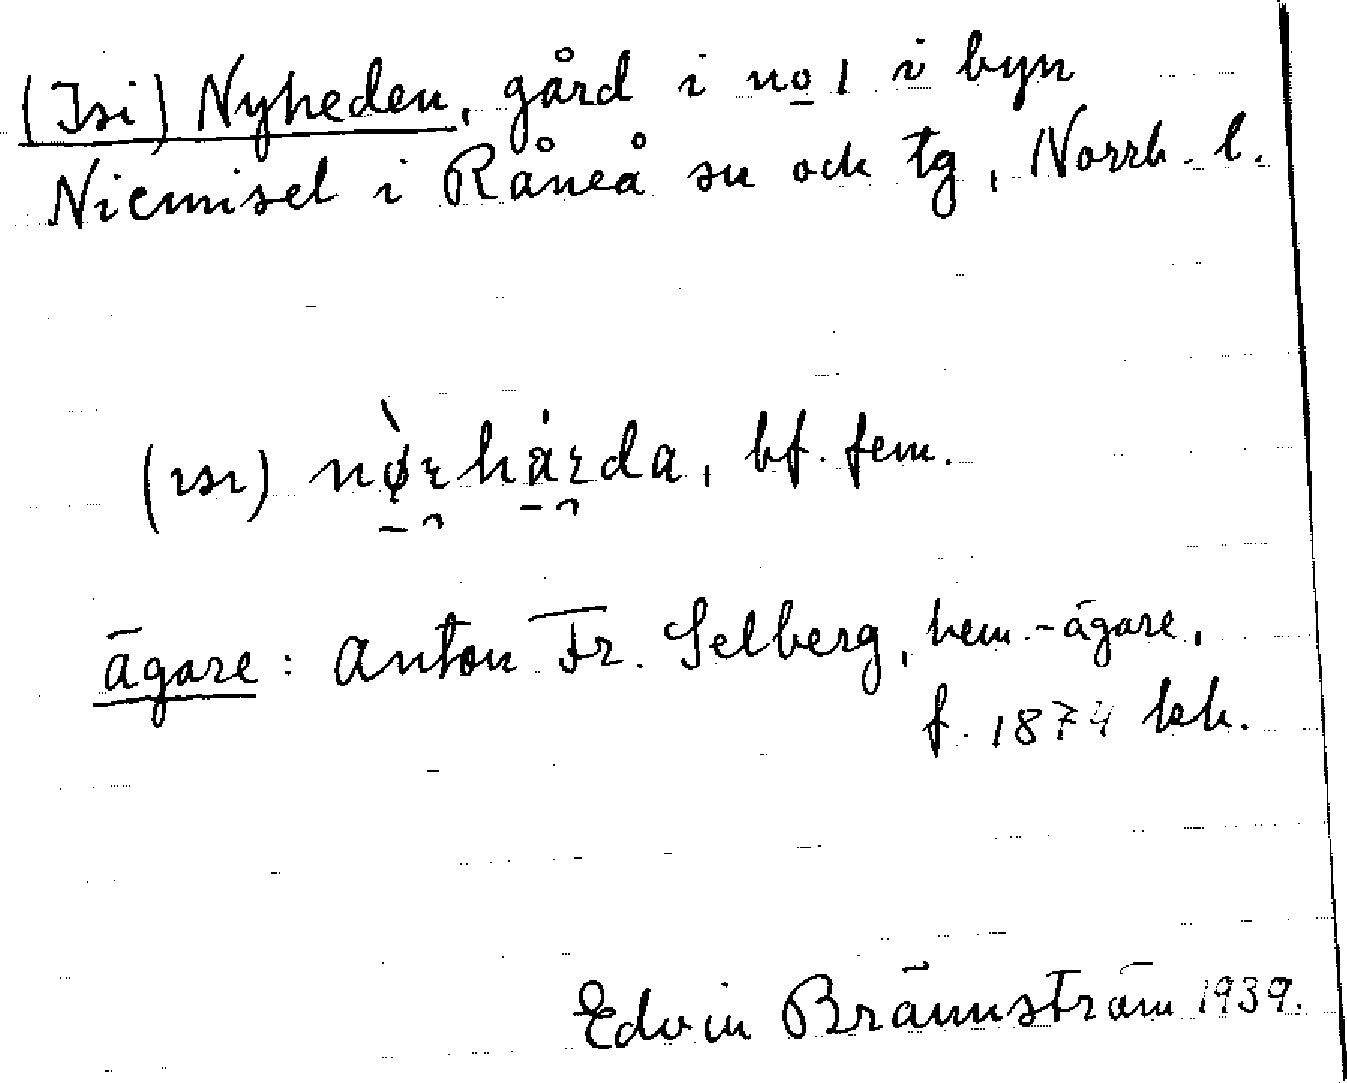 (Isi) Nyheden, gård i no 1 i byn
Niemisel i Råneå sn och tg, Norrb. l.
(ısı) nø̀rhárda, bf. fem.
ägare: Anton Fr. Selberg, hem.-ägare,
f. 1874 hh.
Edvin Brännström 1939.